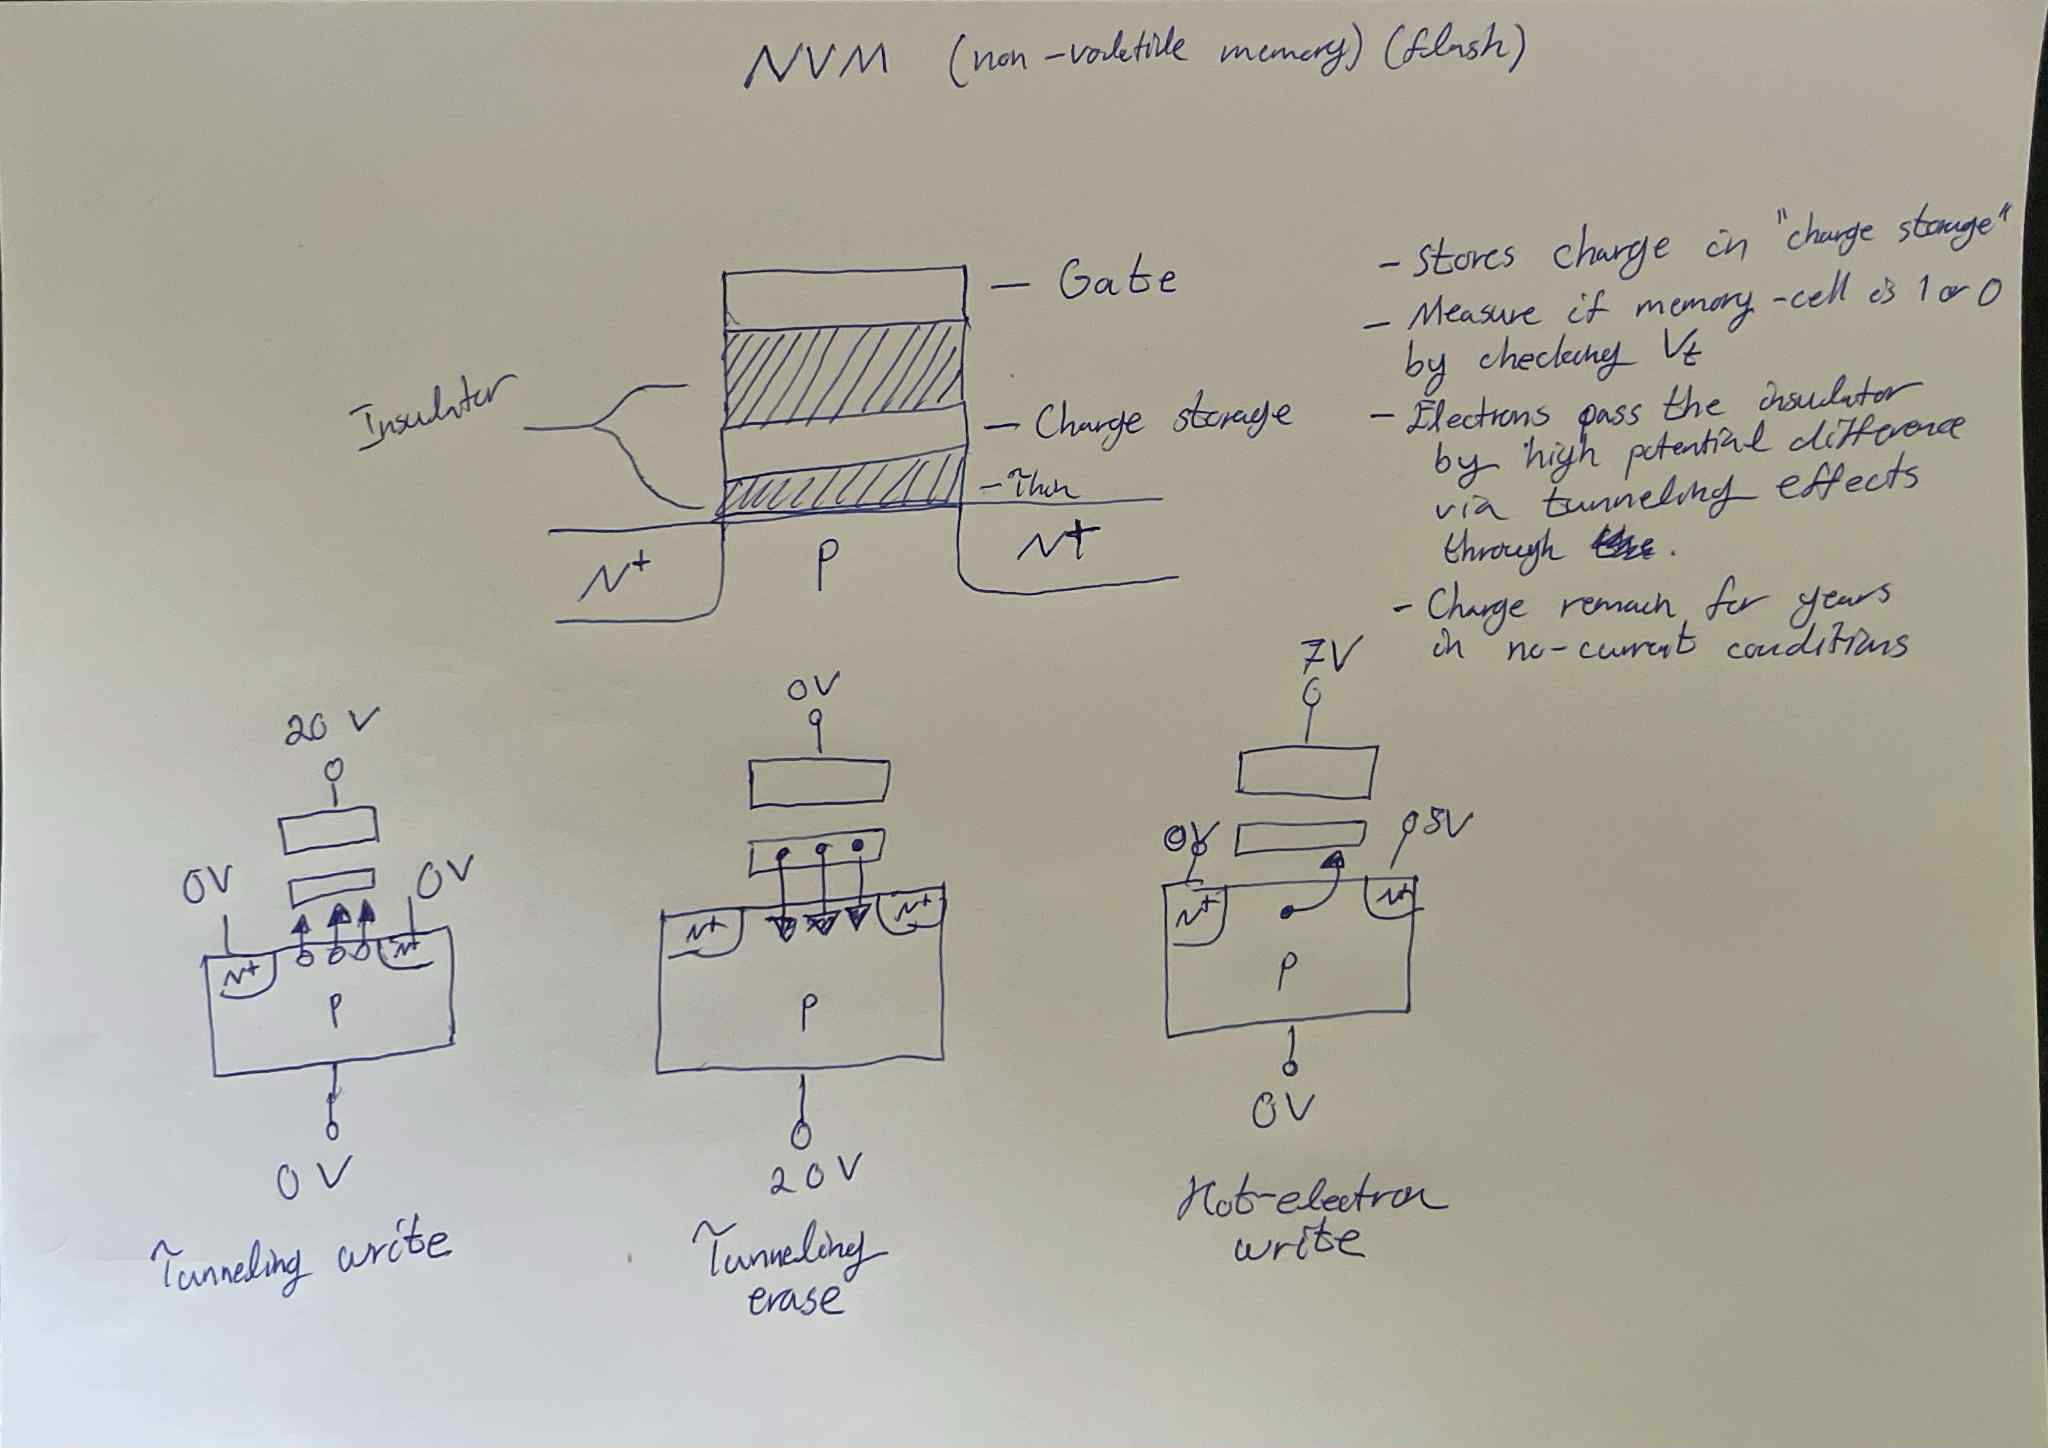 NVM (non-volatile memory) (flash)
Gate
Insulator
Charge storage
Thin
N+
P
N+
- Stores charge in "charge storage"
- Measure if memory-cell is 1 or 0
by checking Vt
- Electrons pass the insulator
by high potential difference
via tunneling effects
through
- Charge remain for years
in no-current conditions
20 V
0V
0V
N+
N+
P
0V
Tunneling write
0V
N+
N+
P
20V
Tunneling
erase
7V
0V
5V
N+
N+
P
0V
Hot-electron
write